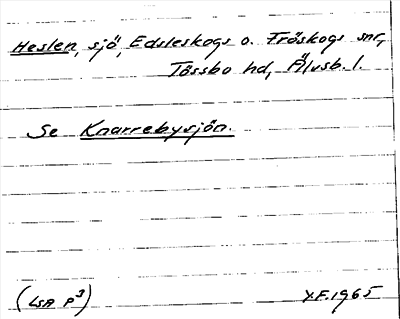 Heslen, sjö, Edsleskogs o. Fröskogs snr,
Tössbo hd, Älvsb. l.
Se Knarrebysjön.
(LSA P3)
Y.F. 1965